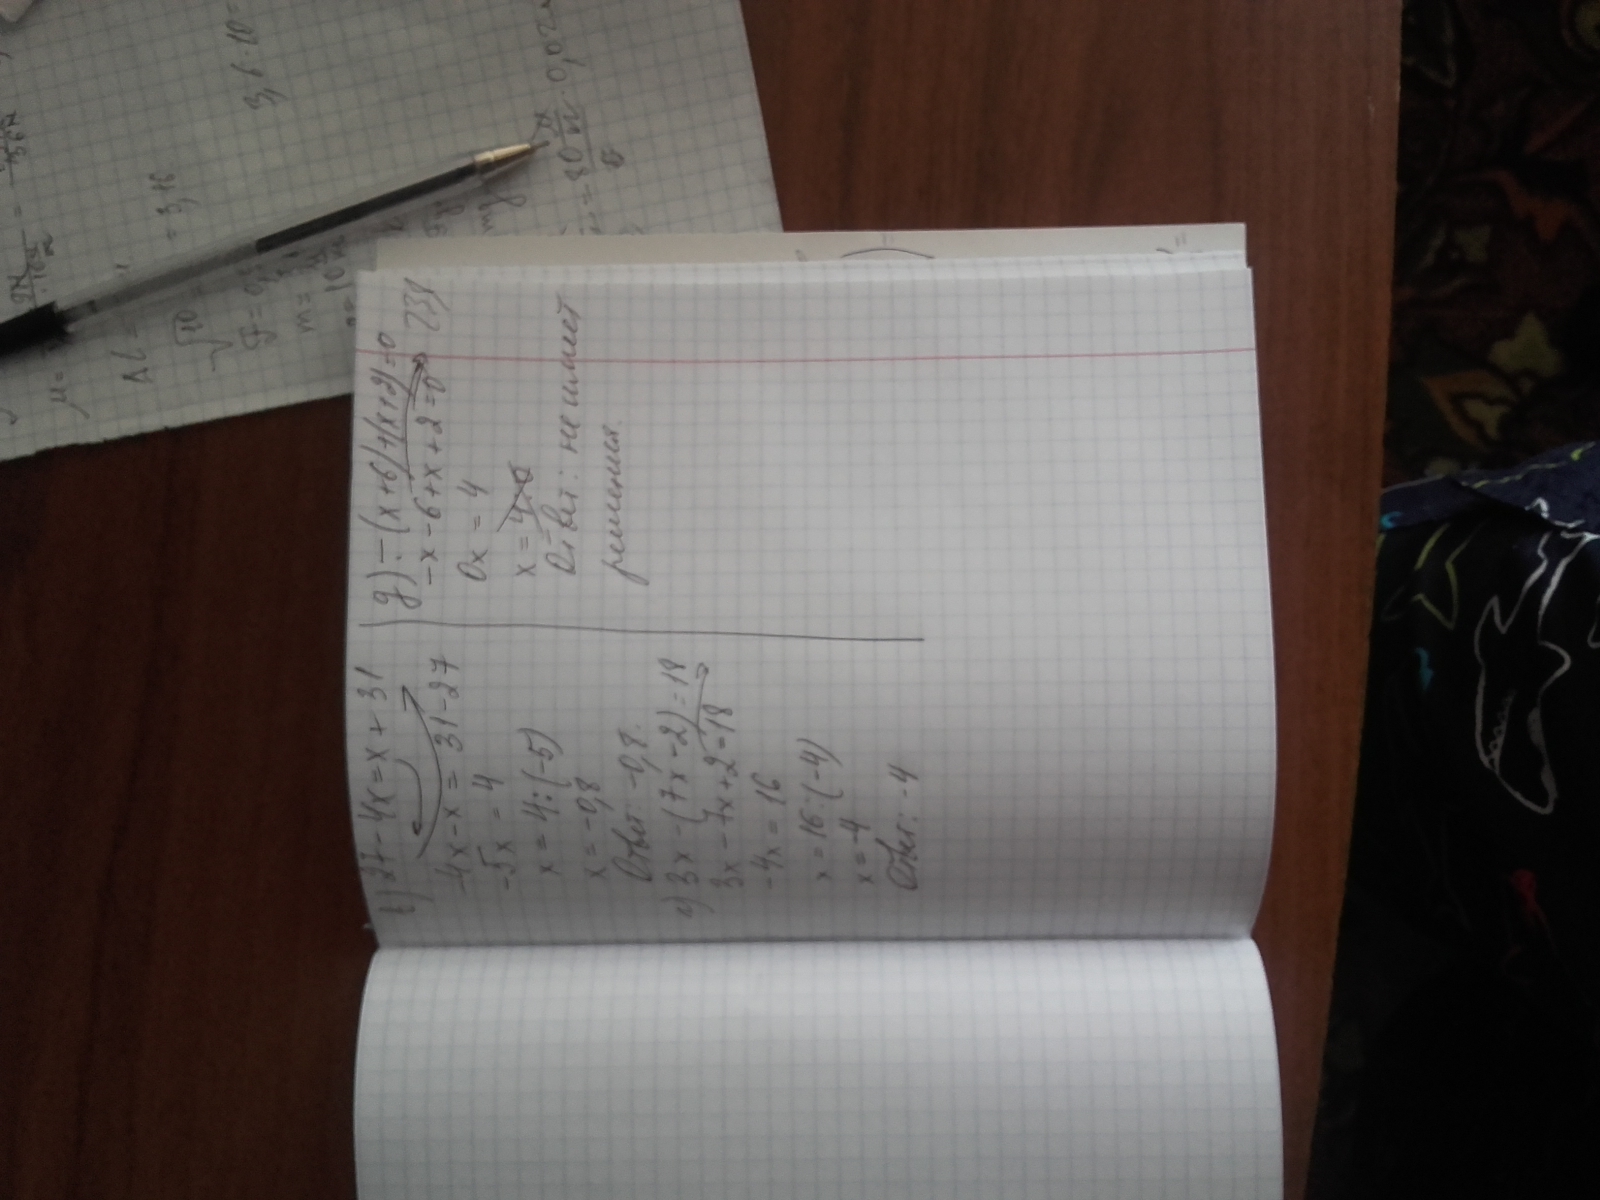 в) 27-4x=x+31
-4x-x = 31-27
-5x = 4
x = 4:(-5)
x=-0,8
Ответ: -0,8.
г) 3x-(7x-2)=18
3x-7x+2=18
-4x=16
x=16:(-4)
x=-4
Ответ: -4
д) -(x+6)+(x+2)=0
-x-6+x+2=0
0x = 4
x =
Ответ: не имеет
решения.
= 3,16
3,6·10=
√10
m=
mg
=80